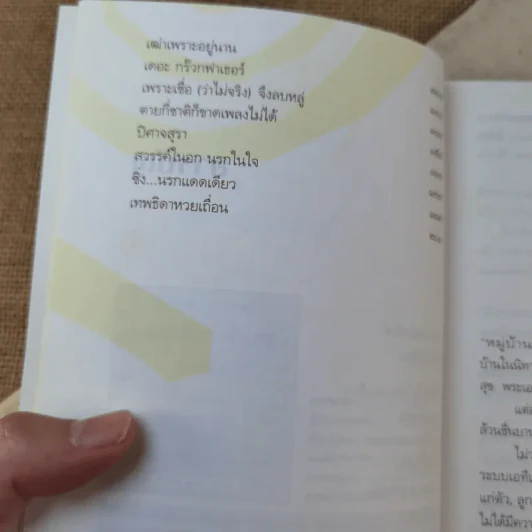 เฒ่าเพราะอยู่นาน
เดอะ กร๊วกฟาเธอร์
เพราะเชื่อ (ว่าไม่จริง) จึงลบหลู่
ตายกี่ชาติก็ขาดเพลงไม่ได้
ปีศาจสุรา
สวรรค์ในอก นรกในใจ
ซิง...นรกแดดเดียว
เทพธิดาหวยเถื่อน
"หมู่บ้าน
บ้านในนิทา
สุข พระเอ
แต่
ล้วนชื่นบาน
ไม่ว
ระบบเอทีเ
แก่ตัว, ลูก
ไม่ได้มีควา